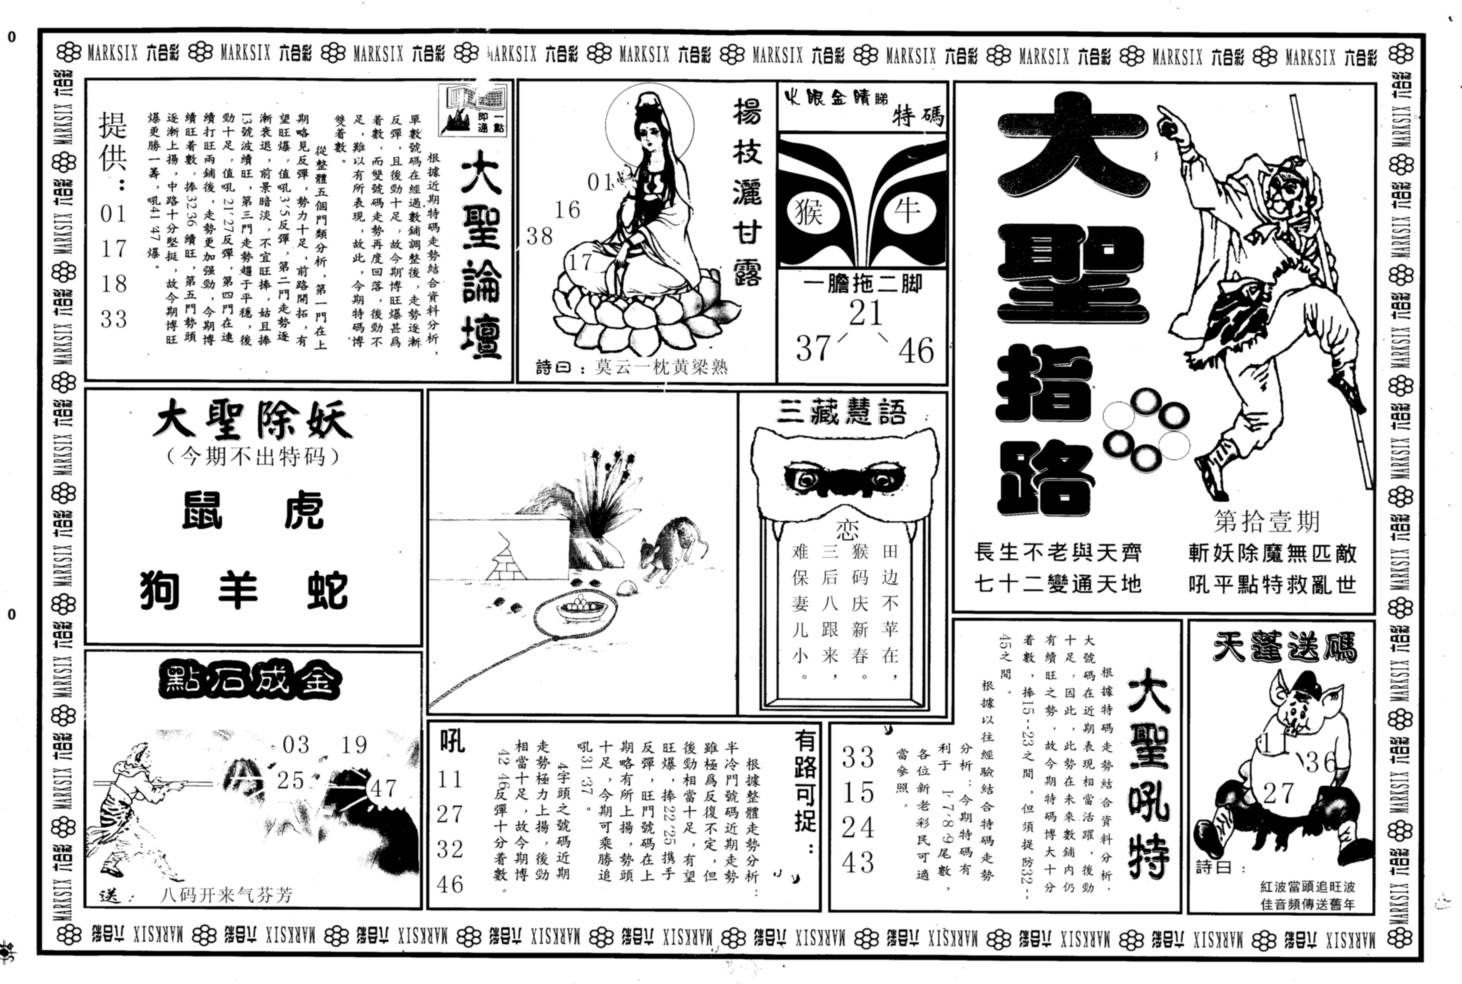 MARKSIX 六合彩 MARKSIX 六合彩 MARKSIX 六合彩 MARKSIX 六合彩 MARKSIX 六合彩 MARKSIX 六合彩 MARKSIX 六合彩 MARKSIX 六合彩 MARKSIX 六合彩 MARKSIX 六合彩
大聖指路
第拾壹期
長生不老與天齊
七十二變通天地
斬妖除魔無匹敵
吼平點特救亂世
火眼金睛睇
特碼
猴
牛
一膽拖二脚
21
37
46
楊枝灑甘露
01
16
38
17
詩曰：莫云一枕黄梁熟
一點即通
大聖論壇
根據近期特碼走勢結合資料分析，
單數號碼在經過數鋪調整後，走勢逐漸
反彈，且後勁十足，故今期博旺爆甚爲
着數，而雙號碼走勢再度回落，後勁不
足，難以有所表現，故此，今期特碼博
雙着數。
從整體五個門類分析，第一門在上
期略見反彈，勢力十足，前路開拓，有
望旺爆，值吼3·5反彈，第二門走勢逐
漸衰退，前景暗淡，不宜旺捧，姑且捧
13號波續旺，第三門走勢趨于平穩，後
勁十足，值吼21·27反彈，第四門在連
續打旺兩鋪後，走勢更加强勁，今期博
續旺着數，捧32·36續旺，第五門勢頭
逐漸上揚，中路十分堅挺，故今期博旺
爆更勝一籌，吼41·47爆。
提供：
01
17
18
33
大聖除妖
（今期不出特码）
鼠 虎
狗 羊 蛇
三藏慧語
恋
田边不苹在，
猴码庆新春。
三后八跟来，
难保妻儿小。
點石成金
03
19
25
47
送： 八码开来气芬芳
有路可捉：
根據整體走勢分析：
半冷門號碼近期走勢
雖極爲反復不定，但
後勁相當十足，有望
旺爆，捧22·25携手
反彈，旺門號碼在上
期略有所上揚，勢頭
十足，今期可乘勝追
吼31·37。
4字頭之號碼近期
走勢極力上揚，後勁
相當十足，故今期博
42·46反彈十分着數。
吼
11
27
32
46
大聖吼特
根據特碼走勢結合資料分析，
大號碼在近期表現相當活躍，後勁
十足，因此，此勢在未來數鋪内仍
有續旺之勢，故今期特碼博大十分
着數，捧15--23之間，但須提防32--
45之間。
根據以往經驗結合特碼走勢
分析：今期特碼有
利于 1·7·8·9尾數，
各位新老彩民可適
當參照。
33
15
24
43
天蓬送碼
11
36
27
詩曰：
紅波當頭追旺波
佳音頻傳送舊年